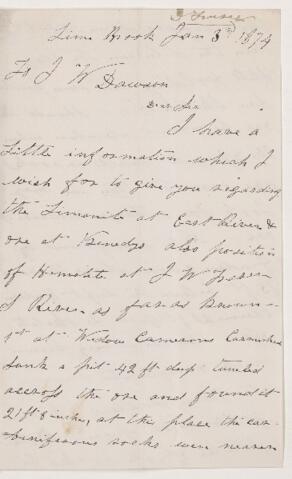 J Fraser
Lime Brook Jan 3rd 1874
To J W Dawson
Dear Sir
I have a
little information which I
wish for to give you regarding
the Limonite at East River &
ore at Kenedys also position
of Hematite at J W Fraser
S River as far as known
1st at Widow Camerons
sunk a pit 42 ft deep tuneled
accross the ore and found it
21 ft 8 inches, at the place the car-
boniferous rocks were nearer